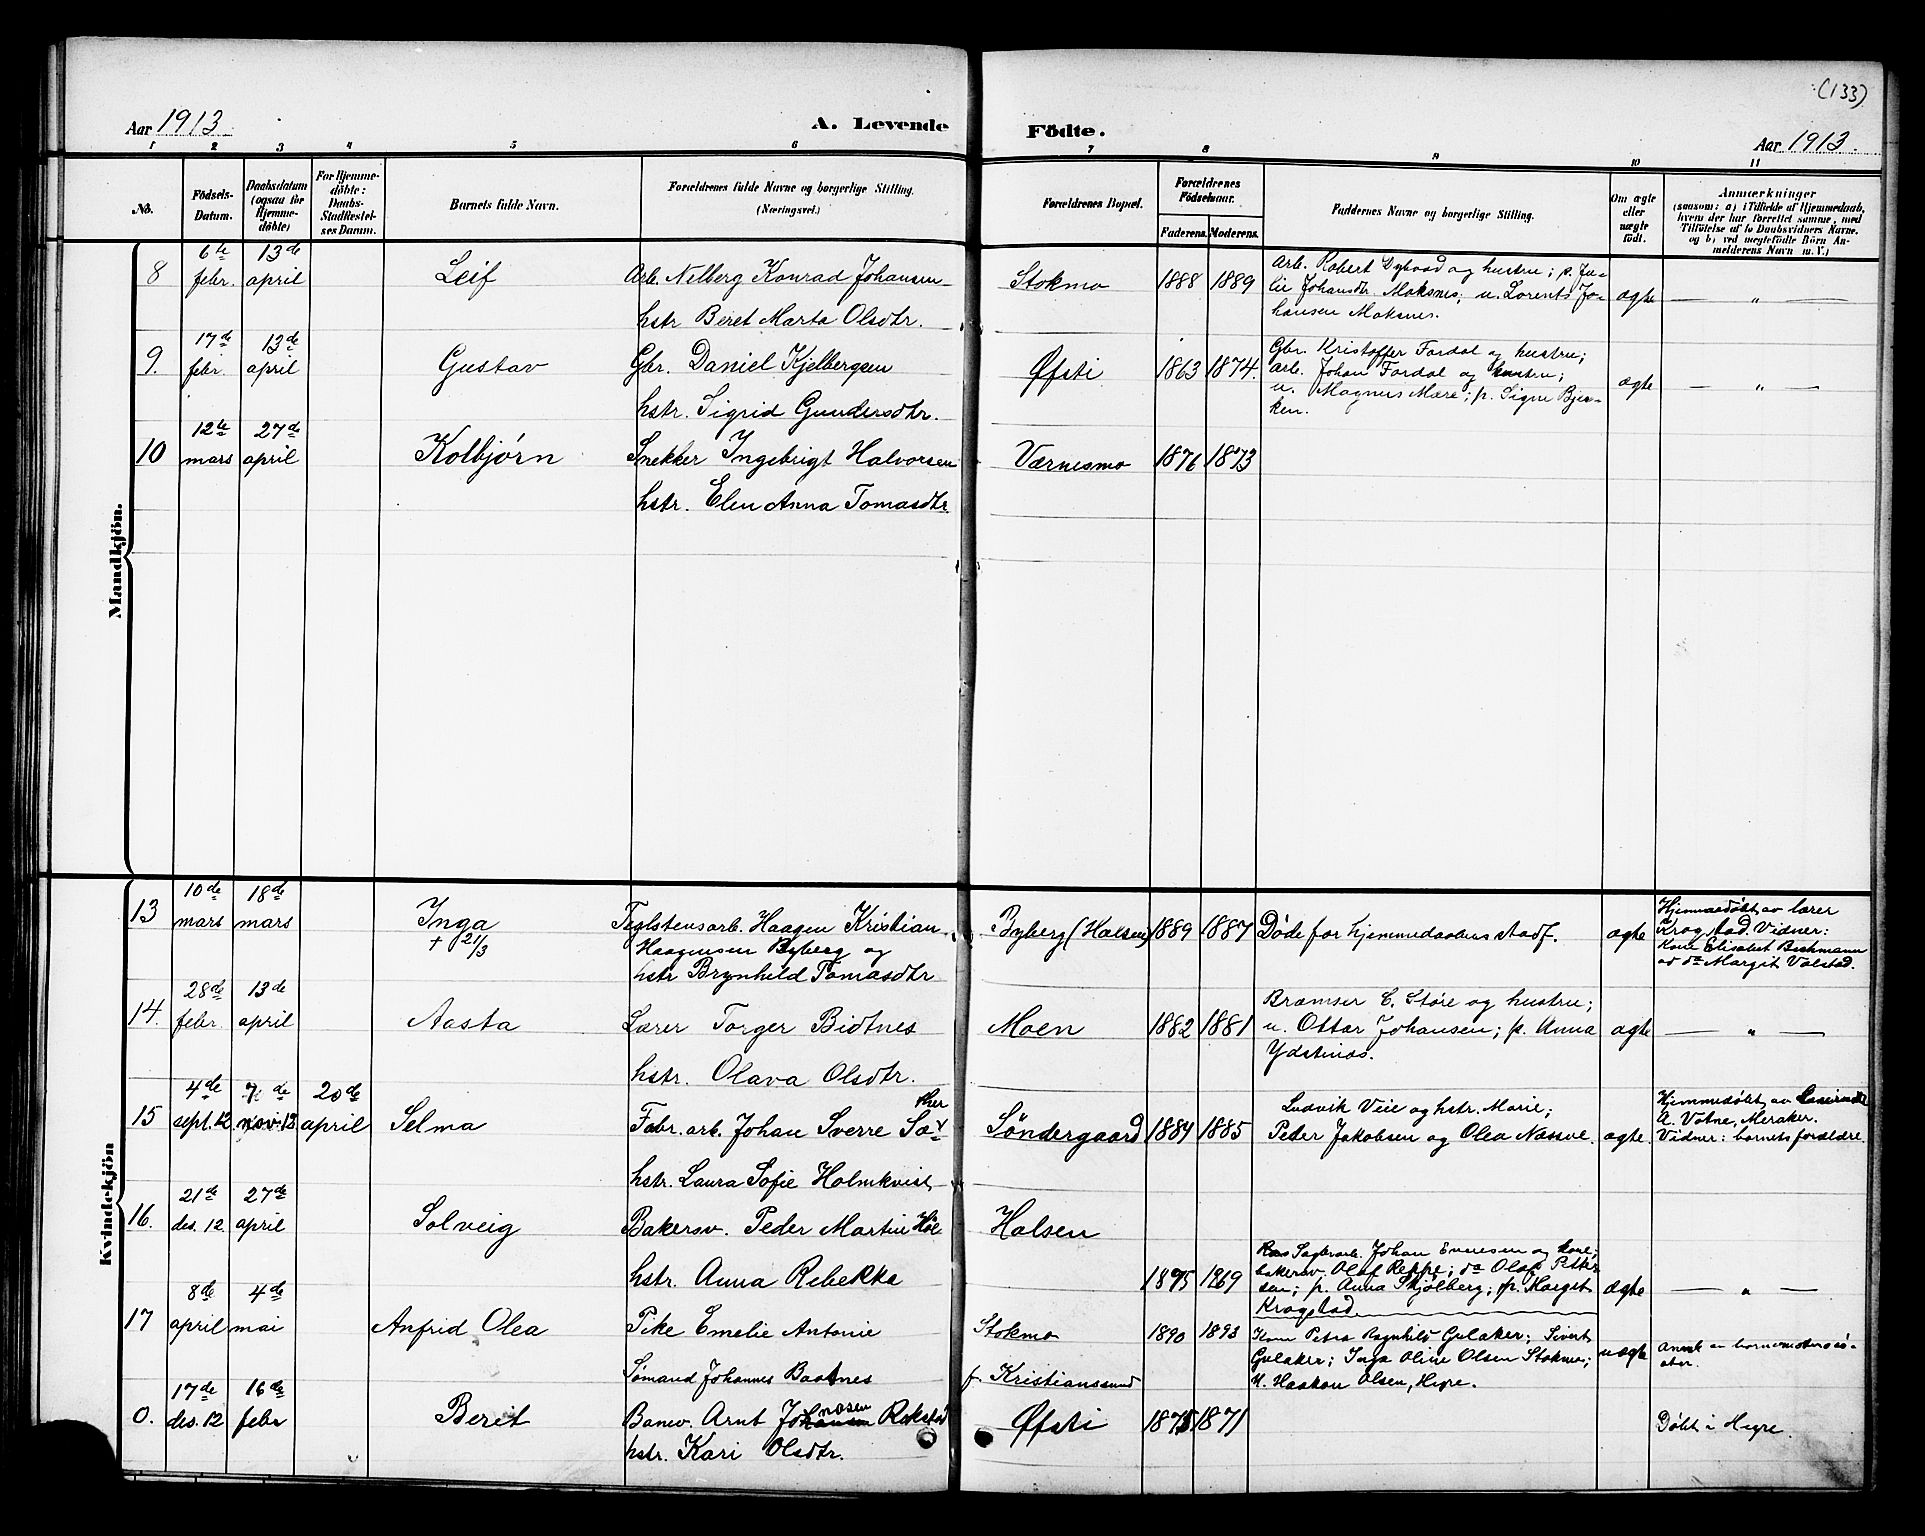 (133)
Aar 1913.
A. Levende Födte.
Aar 1913.
1 2 3 4 5 6 7 8 9 10 11
No.
Födsels-
Datum.
Daabsdatum
(ogsaa for
Hjemme-
döbte)
For Hjemme-
döbte:
Daabs-
Stadfæstel-
ses Datum.
Barnets fulde Navn.
Forældrenes fulde Navne og borgerlige Stilling.
(Næringsvei.)
Forældrenes Bopæl.
Forældrenes
Födselsaar.
Faderens. Moderens.
Faddernes Navne og borgerlige Stilling.
Om ægte
eller
uægte
födt.
Anmærkninger
(saasom: a) i Tilfælde af Hjemmedaab,
hvem der har forrettet samme, med
Tilföielse af to Daabsvidners Navne,
og b) ved uægtefödte Börn An-
melderens Navn m. V.)
Mandkjön.
8 6te febr. 13de april Leif Arb. Nilberg Konrad Johansen
hstr Beret Marta Olsdtr.
Stokmo 1888 1889
Arb. Robert og hustru; p. Ju-
lie Johansdtr. Moksnes; u. Lorents Jo-
hansen Moksnes.
ægte — „ —
9. 17de febr. 13de april Gustav Gbr. Daniel Kjelbergsen
hstr. Sigrid Gundersdtr.
Øfsti 1863 1874.
Gbr. Kristoffer Fordal og hustru;
arb. Johan Fordal og hustru;
u. Magnus Mære; p. Signe Bjer-
ken.
ægte — „ —
10 12te mars 27de april Kolbjørn Snekker Ingebrigt Halvorsen
hstr. Elen Anna Tomasdtr.
Værnesmo 1876 1873
Kvindekjön
13 10de mars 18de mars Inga
+ 21/3
Teglstensarb. Haagen Kristian
Haagensen Byberg og
hstr Brynhild Tomasdtr
Byberg (Halsen) 1889 1887 Døde før hjemmedaabens stadf. ægte
Hjemmedøbt av lærer
Krogstad. Vidner:
Kone Elisabet Bachmann
og do Margit Valstad.
14. 28de febr. 13de april Aasta Lærer Torger Bidtnes
hstr. Olava Olsdtr.
Moen 1882 1881
Bræmser E. Støre og hustru;
u. Ottar Johansen; p. Anna
Ydstinæs.
ægte — „ —
15 4de sept. 12 7de nov. 12 20de april Selma Fabr. arb. Johan Sverre Sæ-
ther
hstr. Laura Sofie Holmkvist
Søndergaard 1884 1885
Ludvik Veie og hstr. Marie;
Peder Jakobsen og Olea Næsve.
ægte.
Hjemmedøbt av
A. Votne, Meraker.
Vidner: barnets forældre.
16. 21de des. 12 27de april Solveig Bakersv. Peder Martin Høe
hstr. Anna Rebekka
Halsen
1875 1869
Sagbrarb. Johan Evensen og kone;
bakersv. Olaf Reppe; do Olaf Petter-
sen; p. Anna Skjølberg; p. Margit
Krogstad
ægte — „ —
17 8de april 4de mai Anfrid Olea Pike Emelie Antonie
Sømand Johannes Baatnes
Stokmo 1890 1893
f. Kristianssund
Kone Petra Ragnhild Gulaker; Sivert
Gulaker; Inga Oline Olsen Stokmo;
U. Haakon Olsen, Hegre.
uægte
Anmk av barnemoters sø-
ster.
0. 17de des. 12 16de febr Berit Banev. Arnt Johansen
nasen Rokstad
hstr. Kari Olsdtr.
Øfsti 1875 1871
Døbt i Hegre.